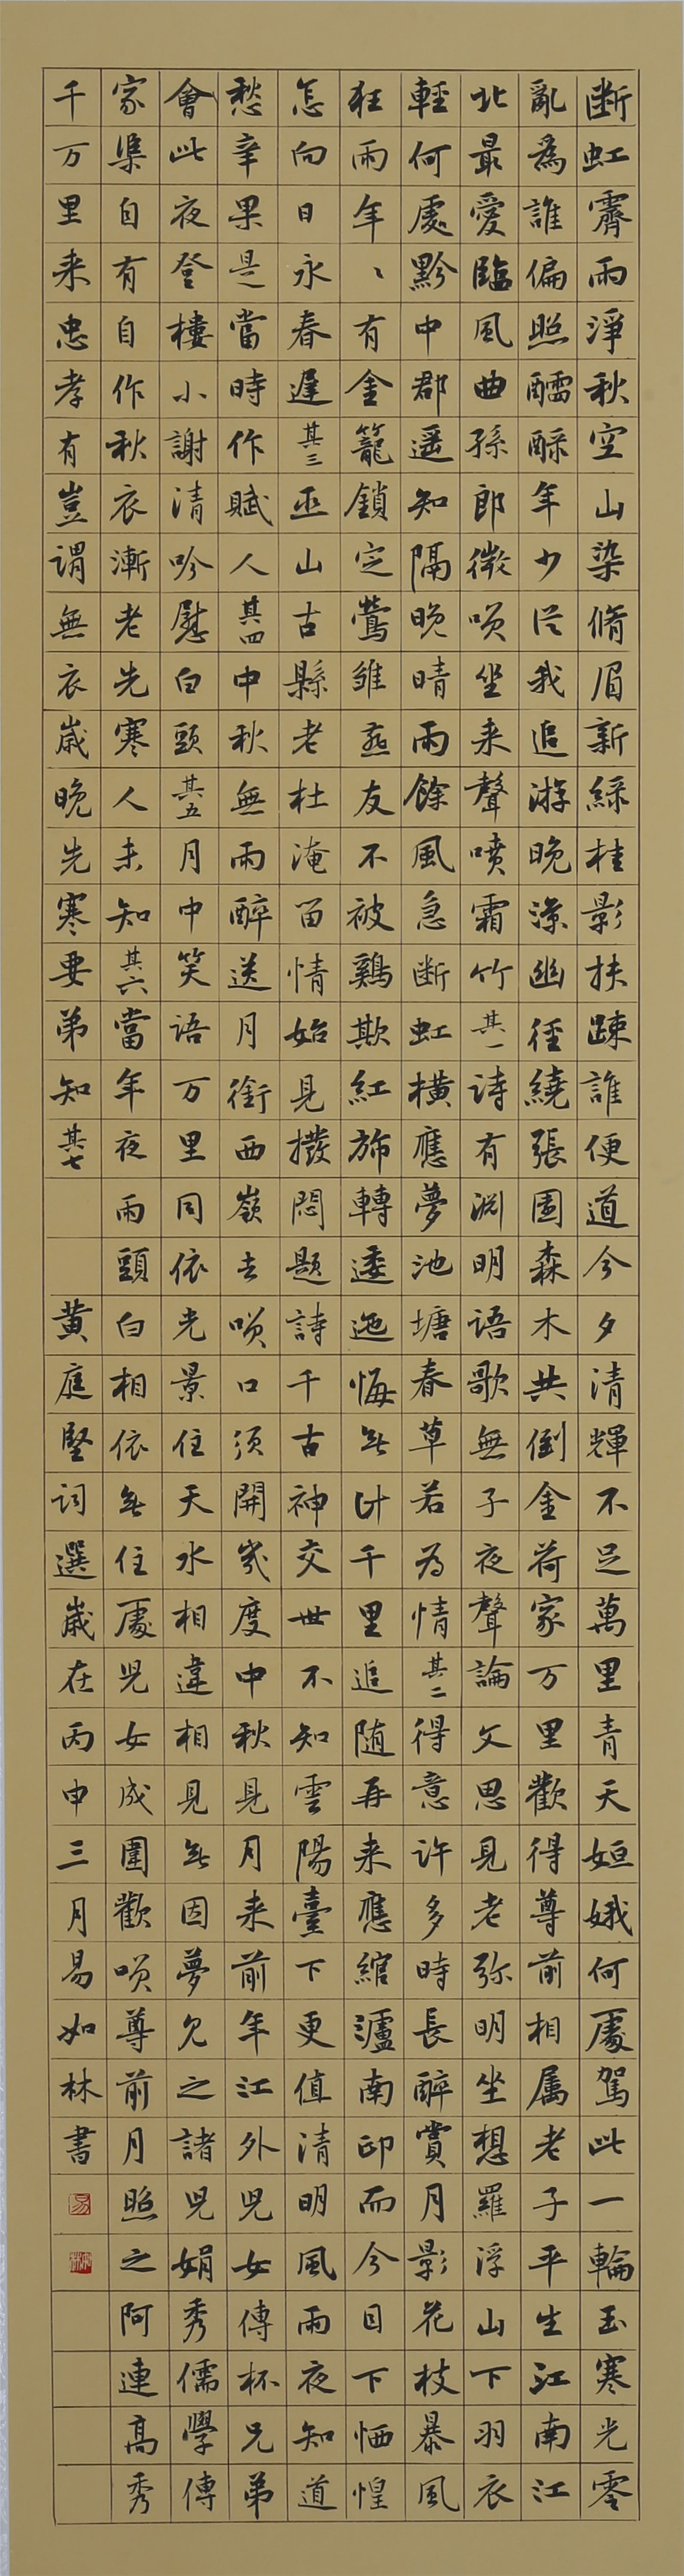 断虹霽雨淨秋空山染脩眉新綠桂影扶踈誰便道今夕清輝不足萬里青天姮娥何處駕此一輪玉寒光零
亂為誰偏照醽醁年少從我追游晚涼幽徑繞張園森木共倒金荷家万里歡得尊前相属老子平生江南江
北最愛臨風曲孫郎微唉坐来聲噴霜竹其一詩有淵明語歌無子夜聲論文思見老弥明坐想羅浮山下羽衣
輕何處黔中郡遥知隔晚晴雨餘風急断虹橫應夢池塘春草若为情其二得意許多時長醉賞月影花枝暴風
狂雨年、有金籠鎖定鶯雛燕友不被鷄欺紅斾轉逶迤悔無計千里追随再来應綰瀘南印而今目下恓惶
怎向日永春遲其三巫山古縣老杜淹留情始見撥悶題詩千古神交世不知雲陽臺下更值清明風雨夜知道
愁辛果是當時作賦人其四中秋無雨醉送月銜西嶺去唉口須開幾度中秋見月来前年江外兒女傳杯兄弟
會此夜登樓小謝清吟慰白頭其五月中笑語万里同依光景住天水相違相見無因夢見之諸兒娟秀儒學傳
家渠自有自作秋衣漸老先寒人未知其六當年夜雨頭白相依無住處兒女成圍歡唉尊前月照之阿連高秀
千万里来忠孝有豈謂無衣歲晚先寒要弟知其七
黄庭堅詞選歲在丙申三月易如林書